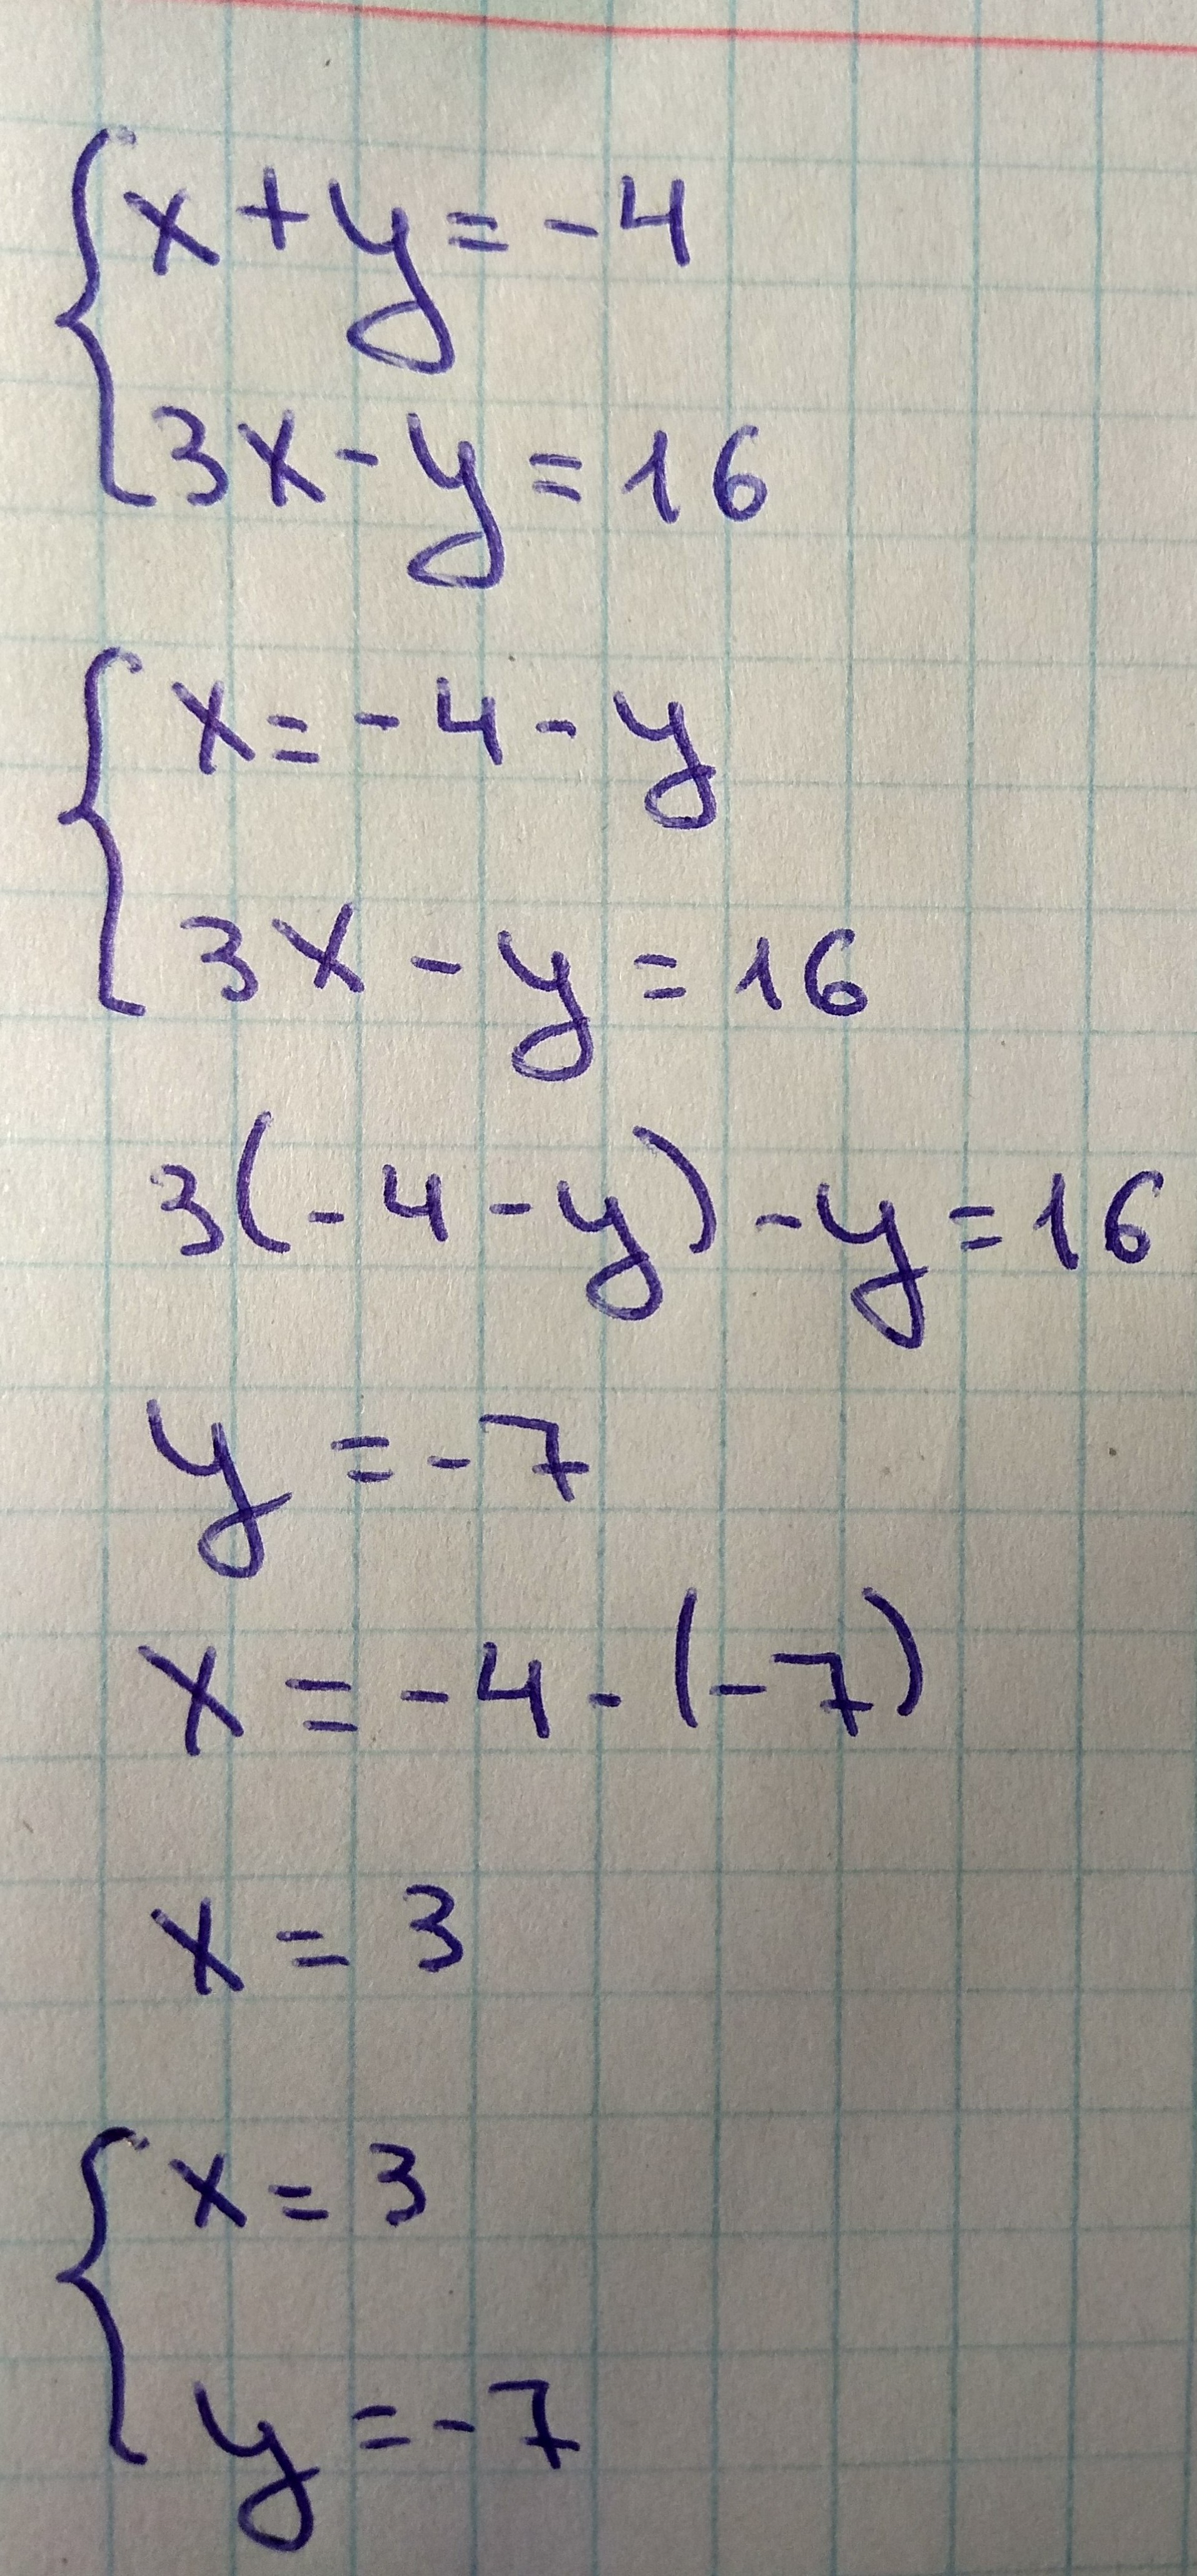 x + y = -4
3x - y = 16
x = -4 - y
3x - y = 16
3(-4 - y) - y = 16
y = -7
x = -4 - (-7)
x = 3
x = 3
y = -7